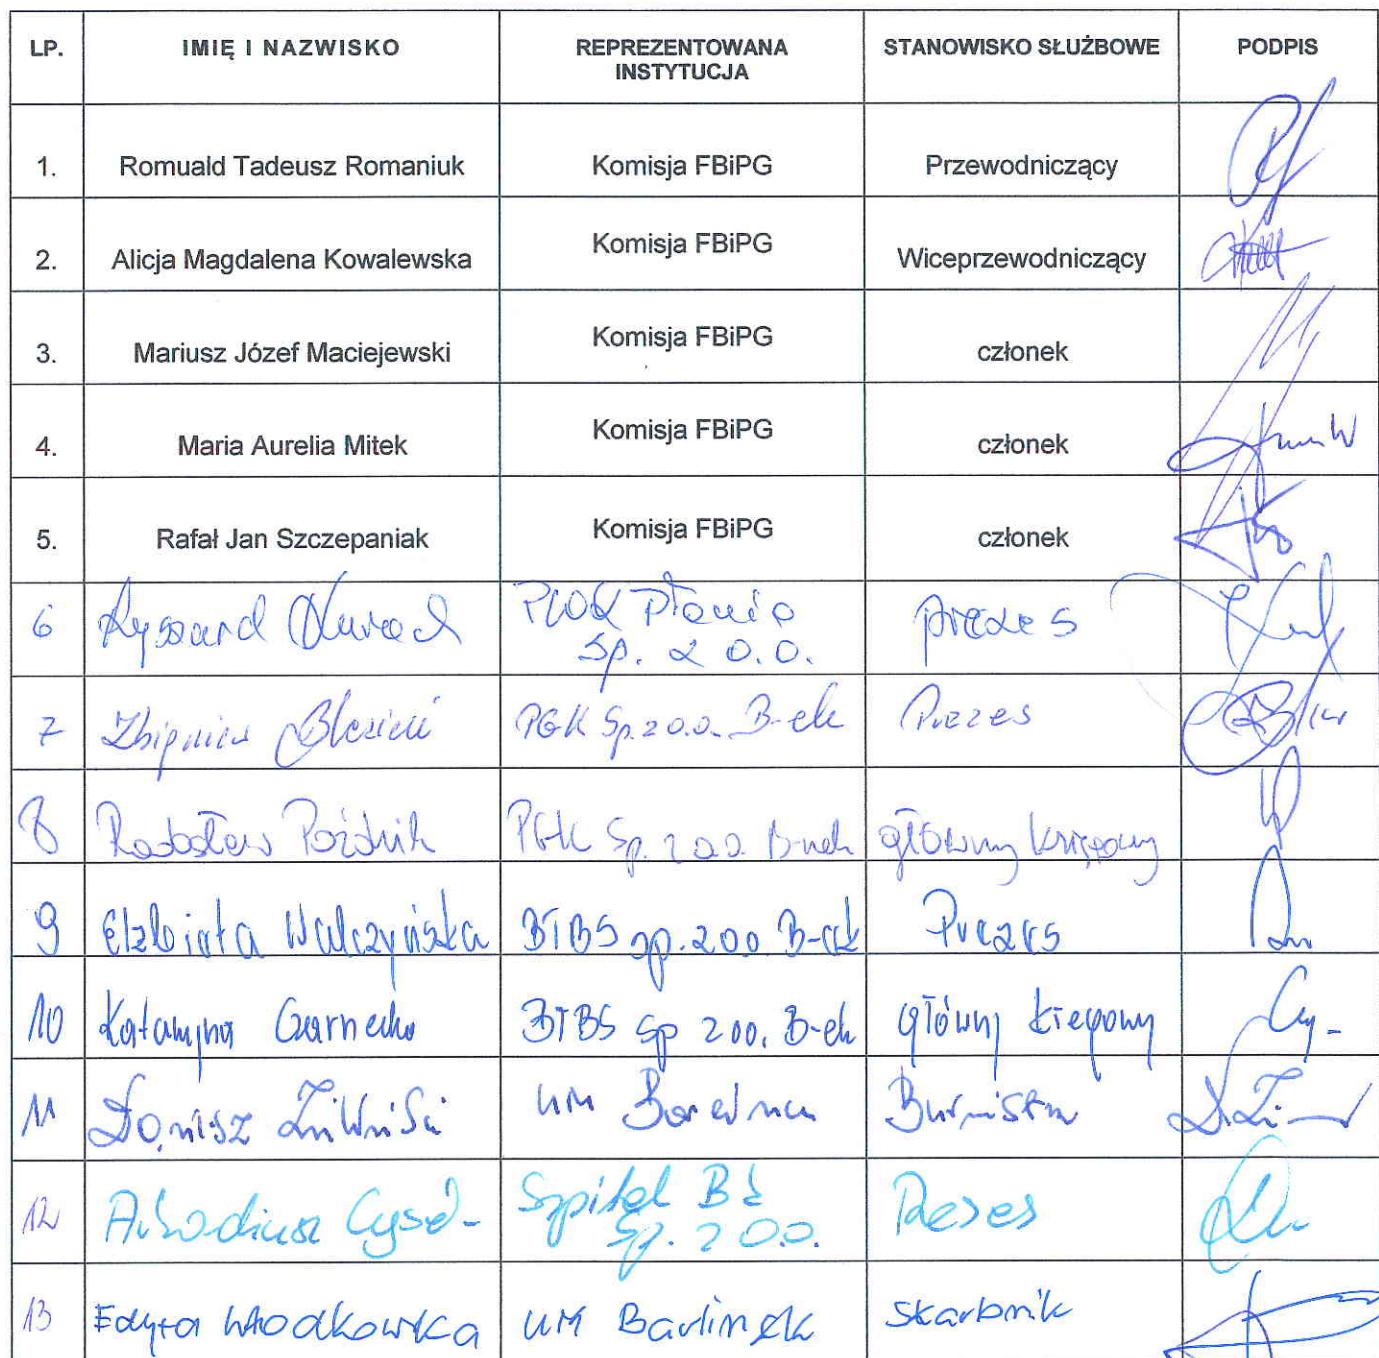 LP. IMIĘ I NAZWISKO REPREZENTOWANA INSTYTUCJA STANOWISKO SŁUŻBOWE PODPIS
1. Romuald Tadeusz Romaniuk Komisja FBiPG Przewodniczący
2. Alicja Magdalena Kowalewska Komisja FBiPG Wiceprzewodniczący
3. Mariusz Józef Maciejewski Komisja FBiPG członek
4. Maria Aurelia Mitek Komisja FBiPG członek
5. Rafał Jan Szczepaniak Komisja FBiPG członek
6 Ryszard Płonia sp. z o.o. prezes
7 Zbigniew PGK Sp. z o.o. B-ek Prezes
8 Radosław PGK Sp. z o.o. B-nek główny księgowy
9 Elżbieta Walczyńska BTBS sp. z o.o. B-ek Prezes
10 Katarzyna Czarnecka BTBS sp z o.o. B-ek główny księgowy
11 UM Burmistrz
12 Arkadiusz Szpital Sp. z o.o. Prezes
13 Edyta Włodkowska UM Barlinek skarbnik